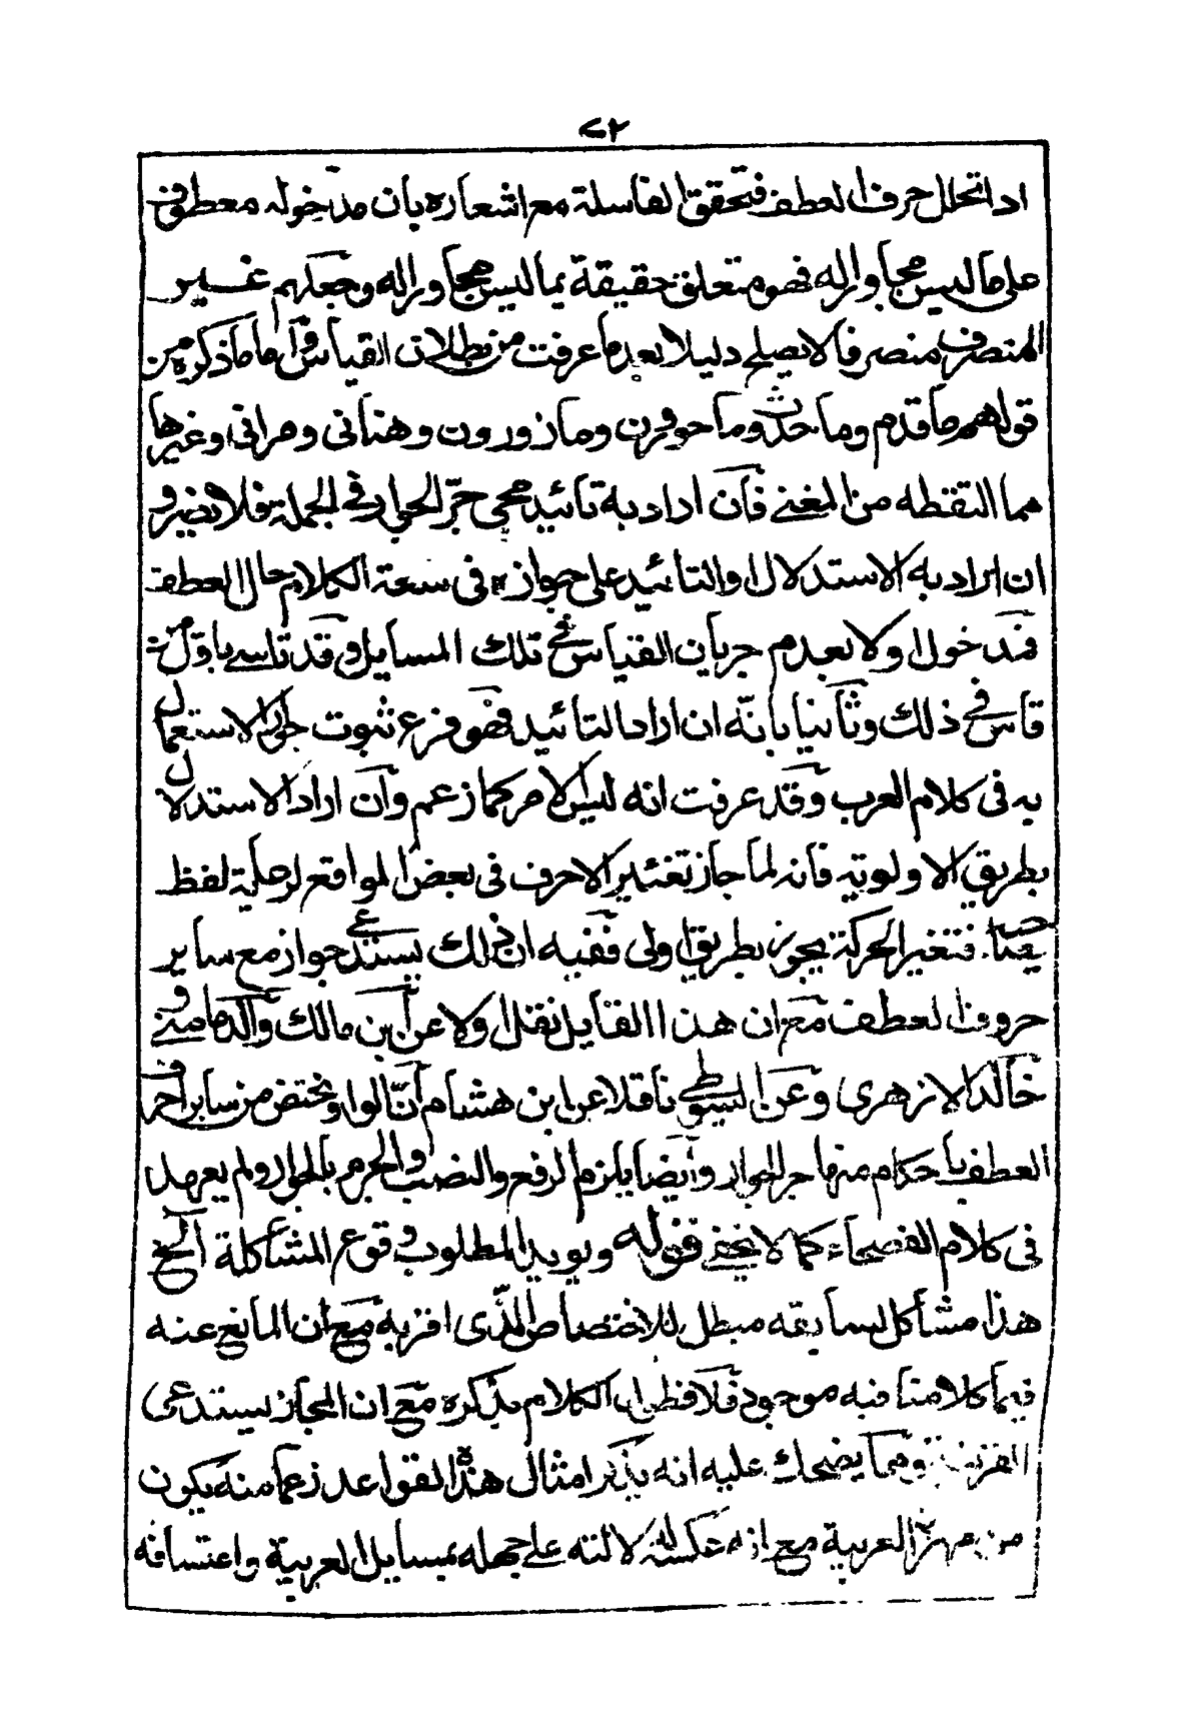 ٧٢
اذا تخلل حرف العطف فتحقق الفاسلة مع اشعاره بان مدخوله معطوف
على ما ليس مجاوراله فهو متعلق حقيقة بما ليس مجاوراله وجعلهم غير
المنصرف منصرفا لا يصلح دليلا بعدما عرفت من بطلان القياس واما ما ذكره من
قولهم ما قدم وما حدث وما حوفرن ومازورون وهنأنى ومرانى وغيرها
مما التقطه من المغنى فان اراد به تائيد مجى جر الجوار فى الجملة فلا يضير و
ان اراد به الاستدلال والتائيد على جوازه فى سعة الكلام حال العطف
فمدخول اولا بعدم جريان القياس فى تلك المسايل وقد تاسى باول من
قاس فى ذلك وثانيا بانه ان اراد التائيد فهو فرع ثبوت جواز الاستعمال
به فى كلام العرب وقد عرفت انه ليس الامر كما زعم وان اراد الاستدلال
بطريق الاولوية فانه لما جاز تغئير الاحرف فى بعض المواقع لرعاية لفظ
فتغير الحركة يجوز بطريق اولى ففيه ان ذلك يستدعى جوازه مع ساير
حروف العطف مع ان هذا القايل نقل اولا عن ابن مالك والدمامينى و
خالد الازهرى وعن السيوطى ناقلا عن ابن هشام ان الواو تختص من ساير احرف
العطف باحكام منها جر الجوار وايضا يلزم الرفع والنصب والجزم بالجوار ولم يعهد
فى كلام الفصحاء كما لا يخفى فقوله ويويد المطلوب وقوع المشاكلة الخ
هذا مشاكل لسابقه مبطل للاختصاص الذى اقربه مع ان المانع عنه
فيما كلامنا فيه موجود فلا الكلام بذكره مع ان المجاز يستدعى
ومما يضحك عليه انه يذكر امثال هذه القواعد زعما منه يكون
من مهرة العربية مع دلالته على جهله بمسايل العربية واعتسافه